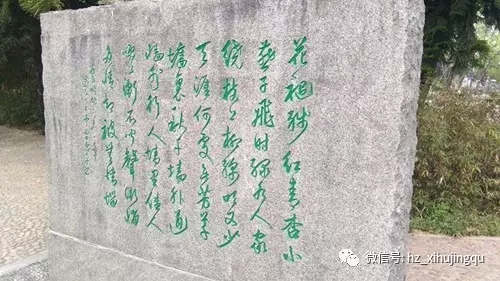 花褪残红青杏小
燕子飞时绿水人家
绕枝上柳绵吹又少
天涯何处无芳草
墙里秋千墙外道
墙外行人墙里佳人
笑笑渐不闻声渐悄
多情却被无情恼
微信号: hz_xihujingqu